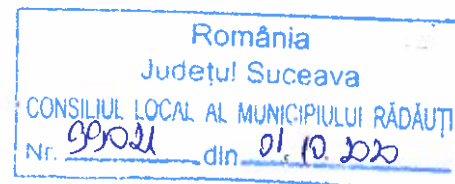 România
Județul Suceava
CONSILIUL LOCAL AL MUNICIPIULUI RĂDĂUȚI
Nr. 99021 din 01. 10. 2020